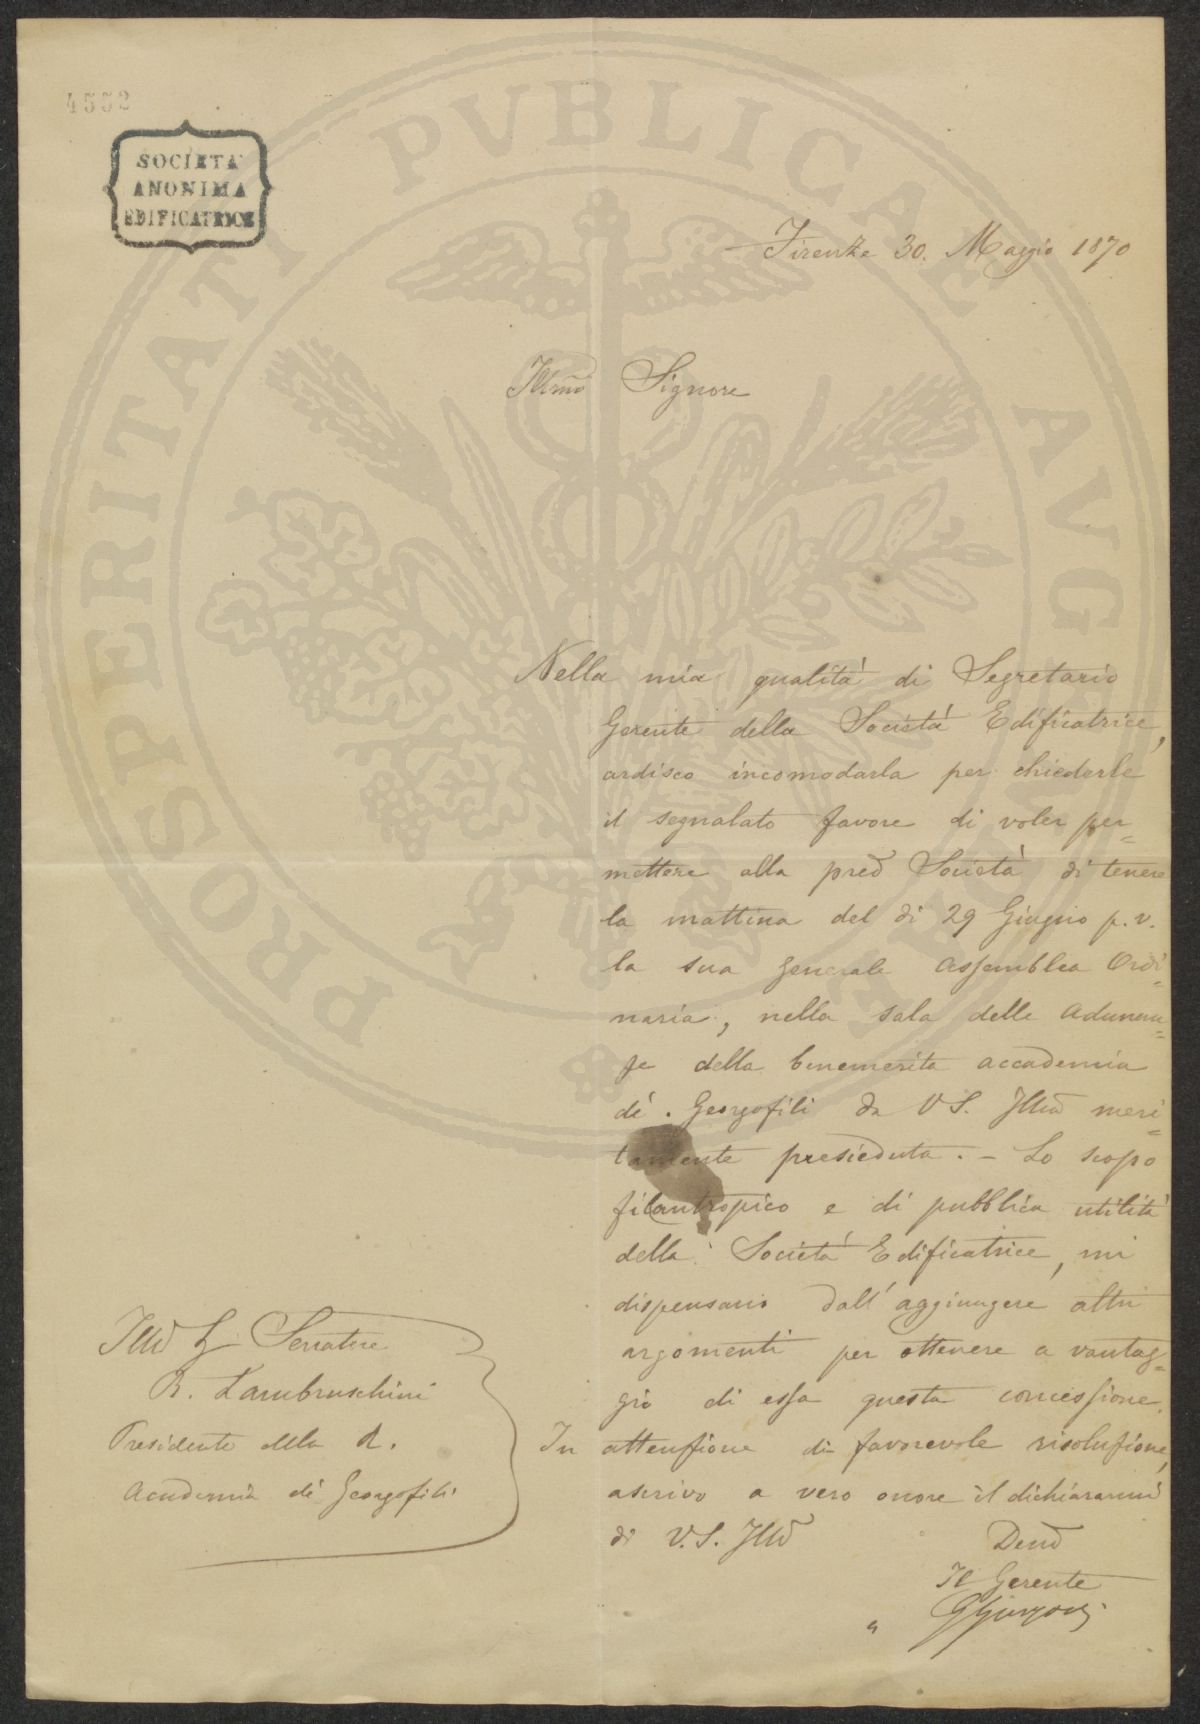 4552
SOCIETÀ
ANONIMA
EDIFICATRICE
PROSPERITATI PVBLICAE AVGENDAE
Firenze 30. Maggio 1870
Illmo Signore
Nella mia qualità di Segretario
Gerente della Società Edificatrice,
ardisco incomodarla per chiederle
il segnalato favore di voler per=
mettere alla pred Società di tenere
la mattina del dì 29 Giugno p. v.
la sua generale assemblea Ordi=
naria, nella sala delle adunan=
ze della benemerita accademia
dé Georgofili da V S. Illma meri=
tamente presieduta. - Lo scopo
filantropico e di pubblica utilità
della Società Edificatrice, mi
dispensano dall'aggiungere altri
argomenti per ottenere a vantag=
gio di essa questa concessione.
In attenzione di favorevole risoluzione,
ascrivo a vero onore il dichiararmi
di V. S. Illma
Devo
Il Gerente
Illmo Senatore
R. Lambruschini
Presidente della R.
Accademia dé Georgofili